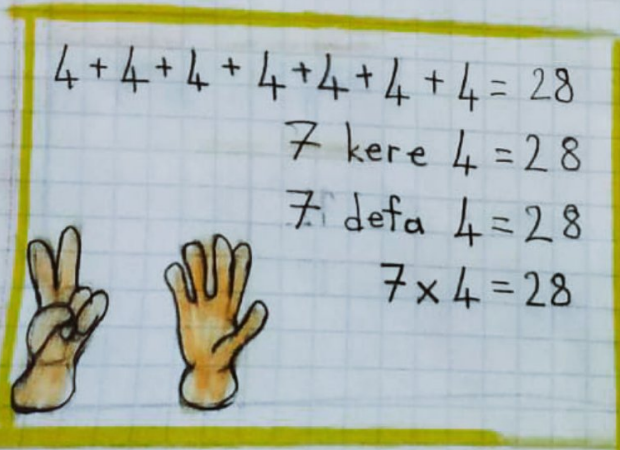 4 + 4 + 4 + 4 + 4 + 4 + 4 = 28
7 kere 4 = 28
7 defa 4 = 28
7 x 4 = 28